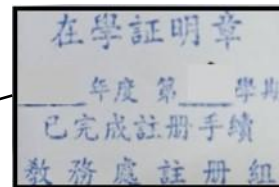 在學証明章
＿＿年度 第＿＿學期
已完成註册手續
教務處註册組